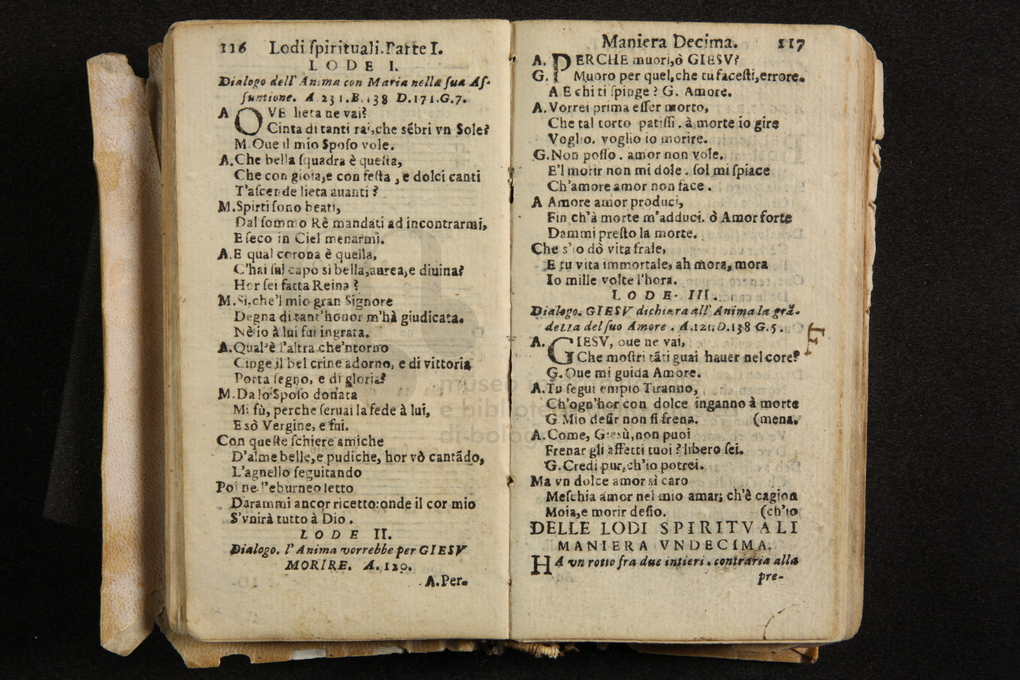 116 Lodi ſpirituali. Parte I.
LODE I.
Dialogo dell'Anima con Maria nella ſua Aſ-
ſuntione. A 231.B.138 D.171.G.7.
A OVE lieta ne vai?
Cinta di tanti rai, che sẽbri vn Sole?
M. Oue il mio Spoſo vole.
A. Che bella ſquadra è queſta,
Che con gioia, e con feſta, e dolci canti
T'aſcende lieta auanti?
M. Spirti ſono beati,
Dal ſommo Rè mandati ad incontrarmi,
E ſeco in Ciel menarmi.
A. E qual corona è quella,
C'hai ſul capo sì bella, aurea, e diuina?
Hor ſei fatta Reina?
M. Sì, che'l mio gran Signore
Degna di tant'honor m'hà giudicata.
Nè io à lui fui ingrata.
A. Qual'è l'altra che'ntorno
Cinge il bel crine adorno, e di vittoria
Porta ſegno, e di gloria?
M. Da lo Spoſo donata
Mi fù, perche ſeruai la fede à lui,
E sò Vergine, e fui.
Con queſte ſchiere amiche
D'alme belle, e pudiche, hor vò cantãdo,
L'agnello ſeguitando
Poi ne l'eburneo letto
Darammi ancor ricetto: onde il cor mio
S'vnirà tutto à Dio.
LODE II.
Dialogo. l'Anima vorrebbe per GIESV
MORIRE. A. 120.
A. Per-
Maniera Decima. 117
A. PERCHE muori, ò GIESV?
G. Muoro per quel, che tu faceſti, errore.
A E chi ti ſpinge? G. Amore.
A. Vorrei prima eſſer morto,
Che tal torto patiſſi. à morte io gire
Voglio. voglio io morire.
G. Non poſſo. amor non vole.
E'l morir non mi dole. ſol mi ſpiace
Ch'amore amor non face.
A Amore amor produci,
Fin ch'à morte m'adduci. ò Amor forte
Dammi preſto la morte.
Che s'io dò vita frale,
E tu vita immortale, ah mora, mora
Io mille volte l'hora.
LODE III.
Dialogo. GIESV dichiara all'Anima la grã-
dezza del ſuo Amore. A.121.D.138 G.5.
A. GIESV, oue ne vai,
Che moſtri tãti guai hauer nel core?
G. Oue mi guida Amore.
A. Tu ſegui empio Tiranno,
Ch'ogn'hor con dolce inganno à morte
G Mio deſir non ſi frena. (mena.
A. Come, Giesù, non puoi
Frenar gli affetti tuoi? libero ſei.
G. Credi pur, ch'io potrei.
Ma vn dolce amor sì caro
Meſchia amor nel mio amar; ch'è cagion
Moia, e morir deſio. (ch'io
DELLE LODI SPIRITVALI
MANIERA VNDECIMA.
HA vn rotto fra due intieri. contraria alla
pre-